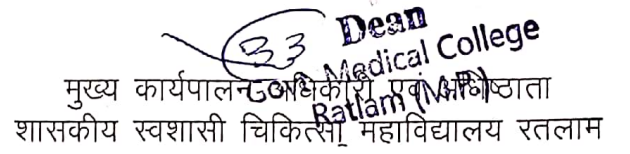 33 Dean
Govt. Medical College
Ratlam (M.P.)
मुख्य कार्यपालन अधिकारी एवं अधिष्ठाता
शासकीय स्वशासी चिकित्सा महाविद्यालय रतलाम